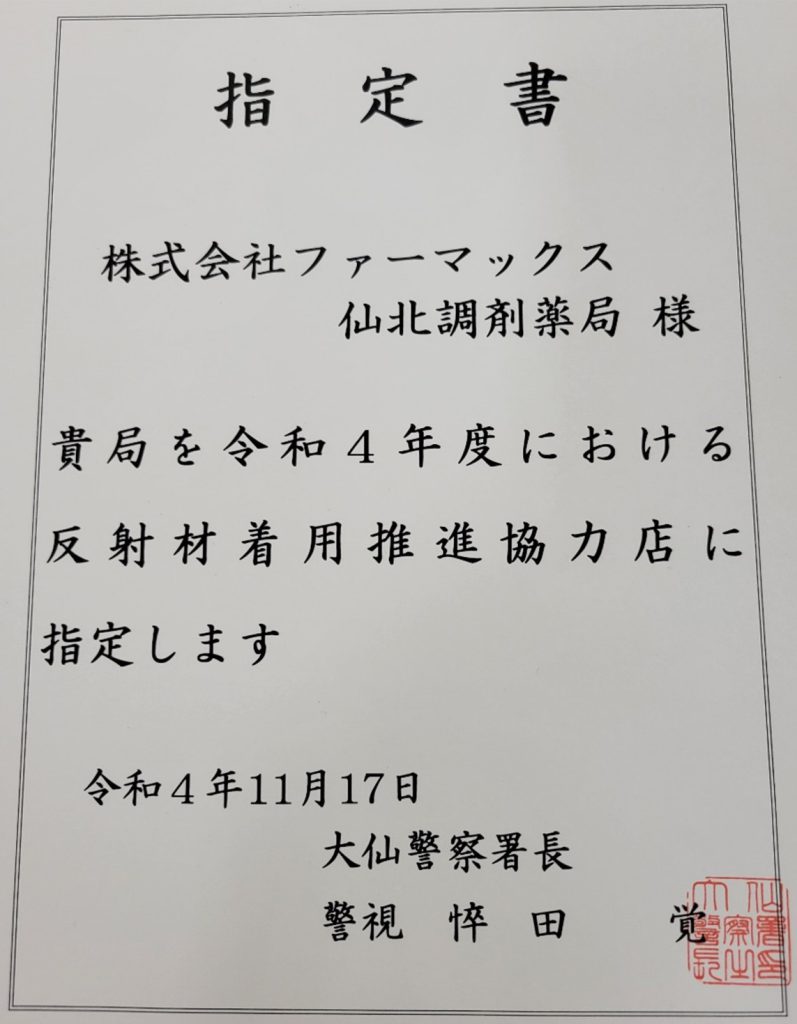 指定書
株式会社ファーマックス
仙北調剤薬局 様
貴局を令和4年度における
反射材着用推進協力店に
指定します
令和4年11月17日
大仙警察署長
警視 悴田 覚